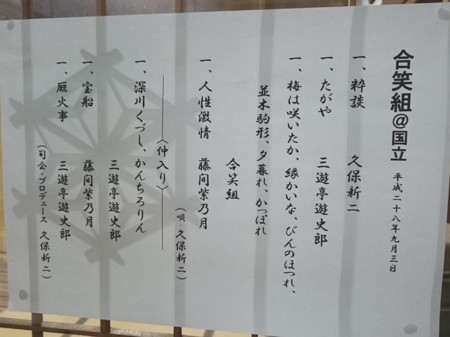 合笑組@国立 平成二十八年九月三日
一、粋談 久保新二
一、たがや 三遊亭遊史郎
一、梅は咲いたか、縁かいな、びんのほつれ、
並木駒形、夕暮れ、かっぽれ
合笑組
一、人性激情 藤間紫乃月
(唄・久保新二)
〈仲入り〉
一、深川くづし、かんちろりん
三遊亭遊史郎
一、宝船 藤間紫乃月
一、厩火事 三遊亭遊史郎
(司会・プロデュース 久保新二)